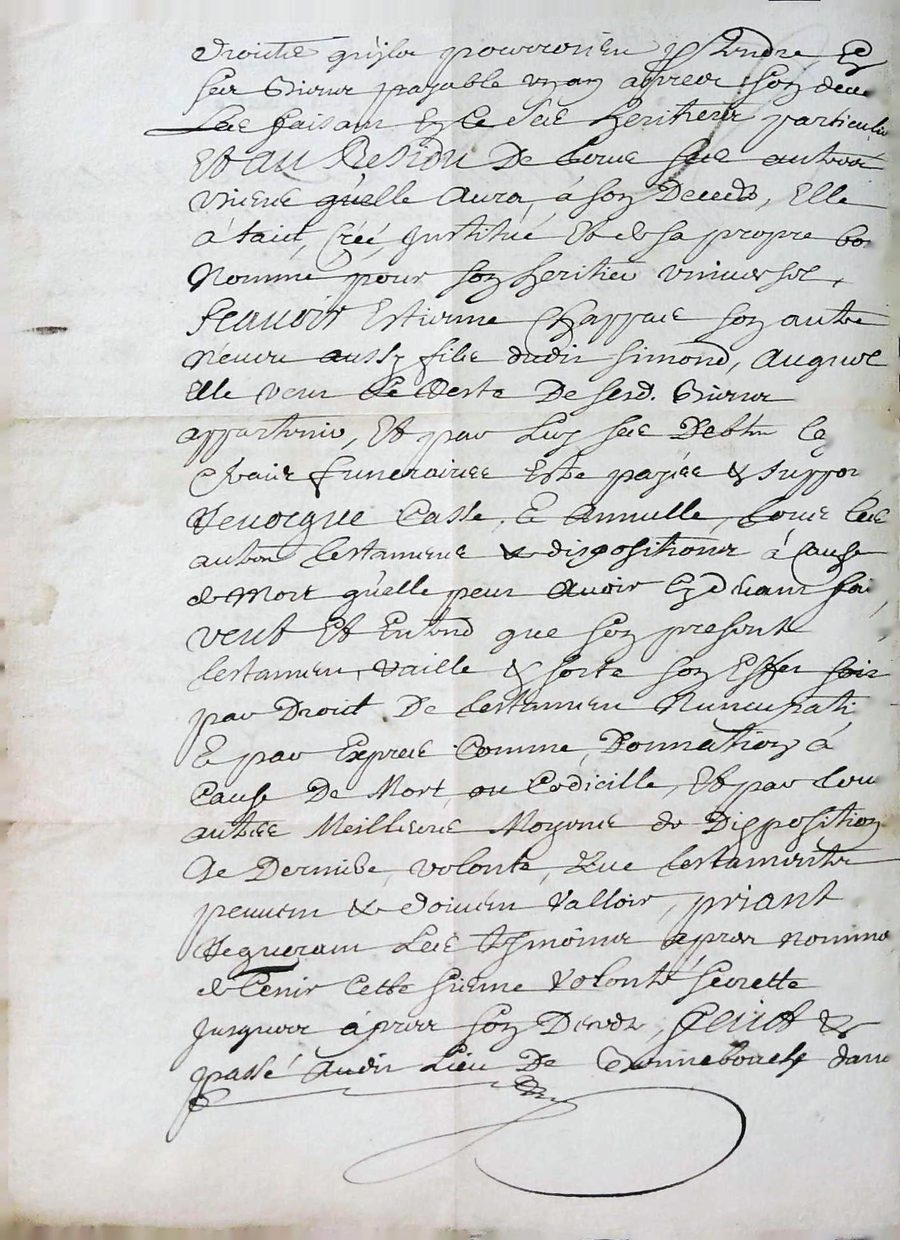 droicts qu'ils pourroient prétendre, Et
ses biens payable un an apres son dece
Les faisant En Ce Ses heritiers particulie
Et au Residu De tous ses autres
biens qu'elle Aura à son Decedz, Elle
à faict, Créé, Institué Et de sa propre bo
Nommé pour son heritier universel,
sçavoir Estienne Chappuis son autre
Neveu aussy filz dudit simond, Auquel
Elle veut Le Reste De sesd. Biens
appartenir, Et par Luy ses Debtes
fraix funeraires Estre payés & suppor
Revocque Casse, Et Annulle, tous les
autres testamens & dispositions à Cause
de Mort qu'elle peut Avoir Cy devant fai
veut Et Entend que son present
testament, vaille & sorte son Effet soit
par Droict De testament Nuncupati
Et par Exprés Comme, Donnation à
Cause De Mort, ou Codicille, Et par tou
autres Meilleurs Moyens de Disposition
De Derniere, volonté, Que testamentz
peuvent & doivent Valloir, priant
Requerant Les tesmoins apres nommé
de Tenir Cette sienne Volonté secrette
jusques à pres son Decedz, faict &
passé Audit Lieu De dans